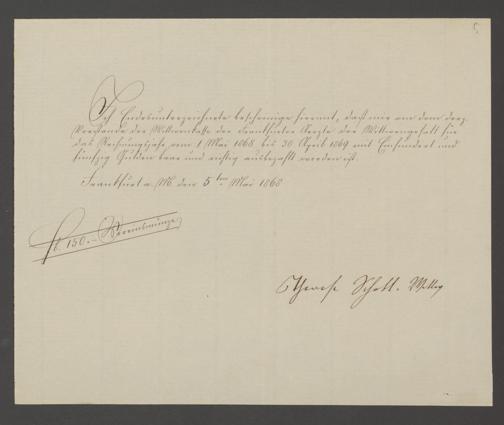 Ich Endesunterzeichnete bescheinige hiermit, daß mir von dem derz.
Vorstande der Wittwenkasse der Frankfurter Aerzte der Wittwengehalt für
das Rechnungsjahr vom 1 Mai 1868 bis 30 April 1869 mit Einhundert und
fünfzig Gulden baar und richtig ausbezahlt worden ist.
Frankfurt a. M. den 5ten Mai 1868
fl. 150.– Vereinsmünze
Therese Schott. Wittwe